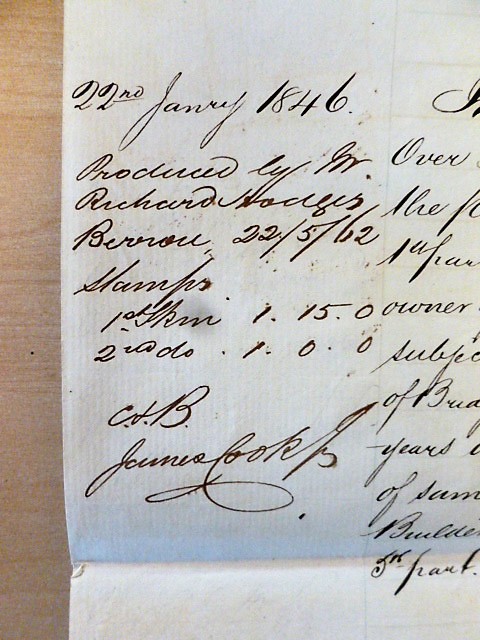 22nd Janry 1846.
Produced by Mr.
Richard Hodges
22/5/62
Stamps
1st Skin 1. 15. 0
2nd do. 1. 0. 0
C.&.B.
James Cook
Over
the
1st part
owner
subject
of
years
of same
Builder
5th part.